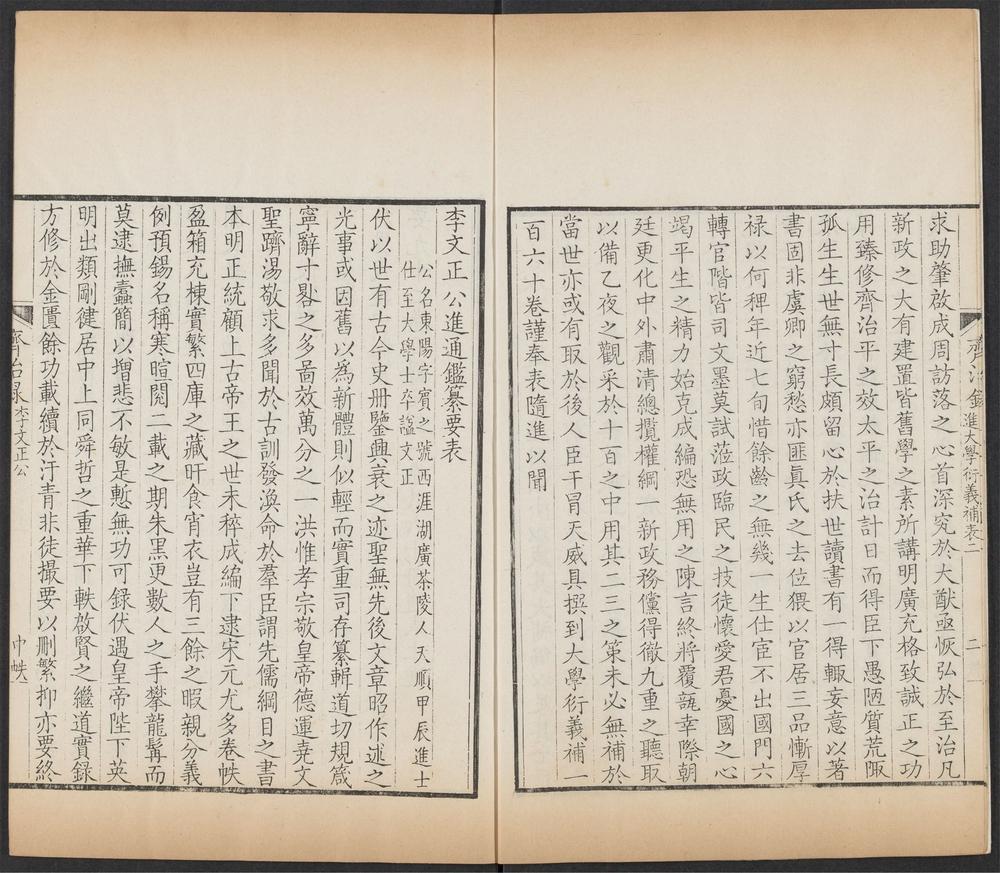 求助肇啟成周訪落之心首深究於大猷亟恢弘於至治凡
新政之大有建置皆舊學之素所講明廣充格致誠正之功
用臻修齊治平之效太平之治計日而得臣下愚陋質荒陬
孤生生世無寸長頗留心於扶世讀書有一得輒妄意以著
書固非虞卿之窮愁亦匪眞氏之去位猥以官居三品慚厚
祿以何稗年近七旬惜餘齡之無幾一生仕宦不出國門六
轉官階皆司文墨莫試蒞政臨民之技徒懷愛君憂國之心
竭平生之精力始克成編恐無用之陳言終將覆瓿幸際朝
廷更化中外肅清總攬權綱一新政務儻得徹九重之聽取
以備乙夜之觀采於十百之中用其二三之策未必無補於
當世亦或有取於後人臣干冒天威具撰到大學衍義補一
百六十卷謹奉表隨進以聞
齊治錄 進大學衍義補表二 二
李文正公進通鑑纂要表
公名東陽字賓之號西涯湖廣茶陵人天順甲辰進士
仕至大學士卒諡文正
伏以世有古今史册鑒興衰之迹聖無先後文章昭作述之
光事或因舊以為新體則似輕而實重司存纂輯道切規箴
寧辭寸晷之多啚效萬分之一洪惟孝宗敬皇帝德運堯文
聖躋湯敬求多聞於古訓發渙命於羣臣謂先儒綱目之書
本明正統顧上古帝王之世未稡成編下逮宋元尤多卷帙
盈箱充棟實繁四庫之藏旰食宵衣豈有三餘之暇親分義
例預錫名稱寒暄閱二載之期朱黑更數人之手攀龍髯而
莫逮撫蠹簡以增悲不敏是慙無功可録伏遇皇帝陛下英
明出類剛健居中上同舜哲之重華下軼啟賢之繼道實錄
方修於金匱餘功載續於汗青非徒撮要以刪繁抑亦要終
齊治录 李文正公 中帙